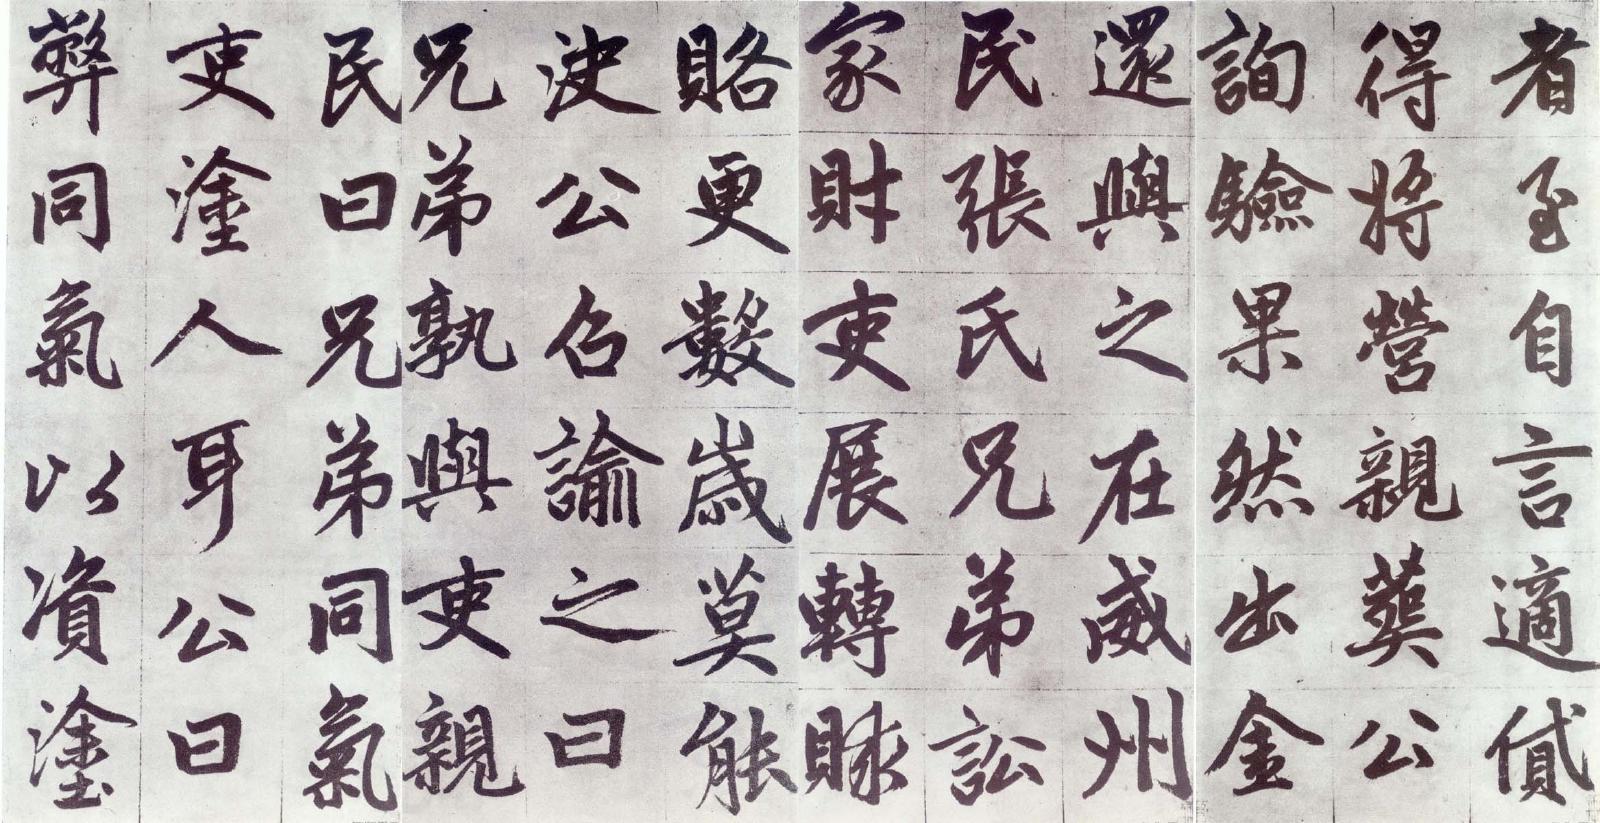 者至自言適貸
得將營親葬公
詢驗果然出金
還與之在威州
民張氏兄弟訟
家財吏展轉賕
賂更數歲莫能
決公召諭之曰
兄弟孰與吏親
民曰兄弟同氣
吏塗人耳公曰
弊同氣以資塗